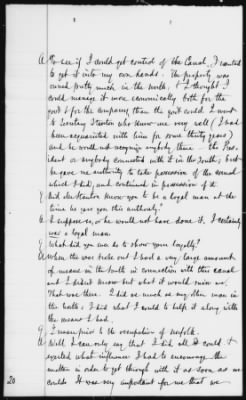 A To see if I could get control of the Canal, I wanted
to get it into my own hands. The property was
owned pretty much in the north, & I thought I
could manage it more economically both for the
govt & for the company than the govt could. I went
to Secretary Stanton who knew me very well (I had
been acquainted with him for some thirty years)
and he would not recognize anybody, the Pres-
ident or anybody connected with it in the South; but
he gave me authority to take possession of the canal
which I did, and continued in possession of it.
Q Did Mr Stanton know you to be a loyal man at the
time he gave you this authority?
A I suppose so, or he would not have done it. I certainly
was a loyal man.
Q What did you use to do to show your loyalty?
A When the war broke out I had a very large amount
of means in the south in connection with this canal
and I didn't know but what it would ruin me.
That was there. I did as much as any other man in
the battle, I did what I could to help it along with
the means I had.
Q I mean prior to the occupation of Norfolk.
A Well I can only say that I did all I could & 
exerted what influence I had to encourage the
matter in order to get through with it as soon as we
could. It was very important for me that we
20